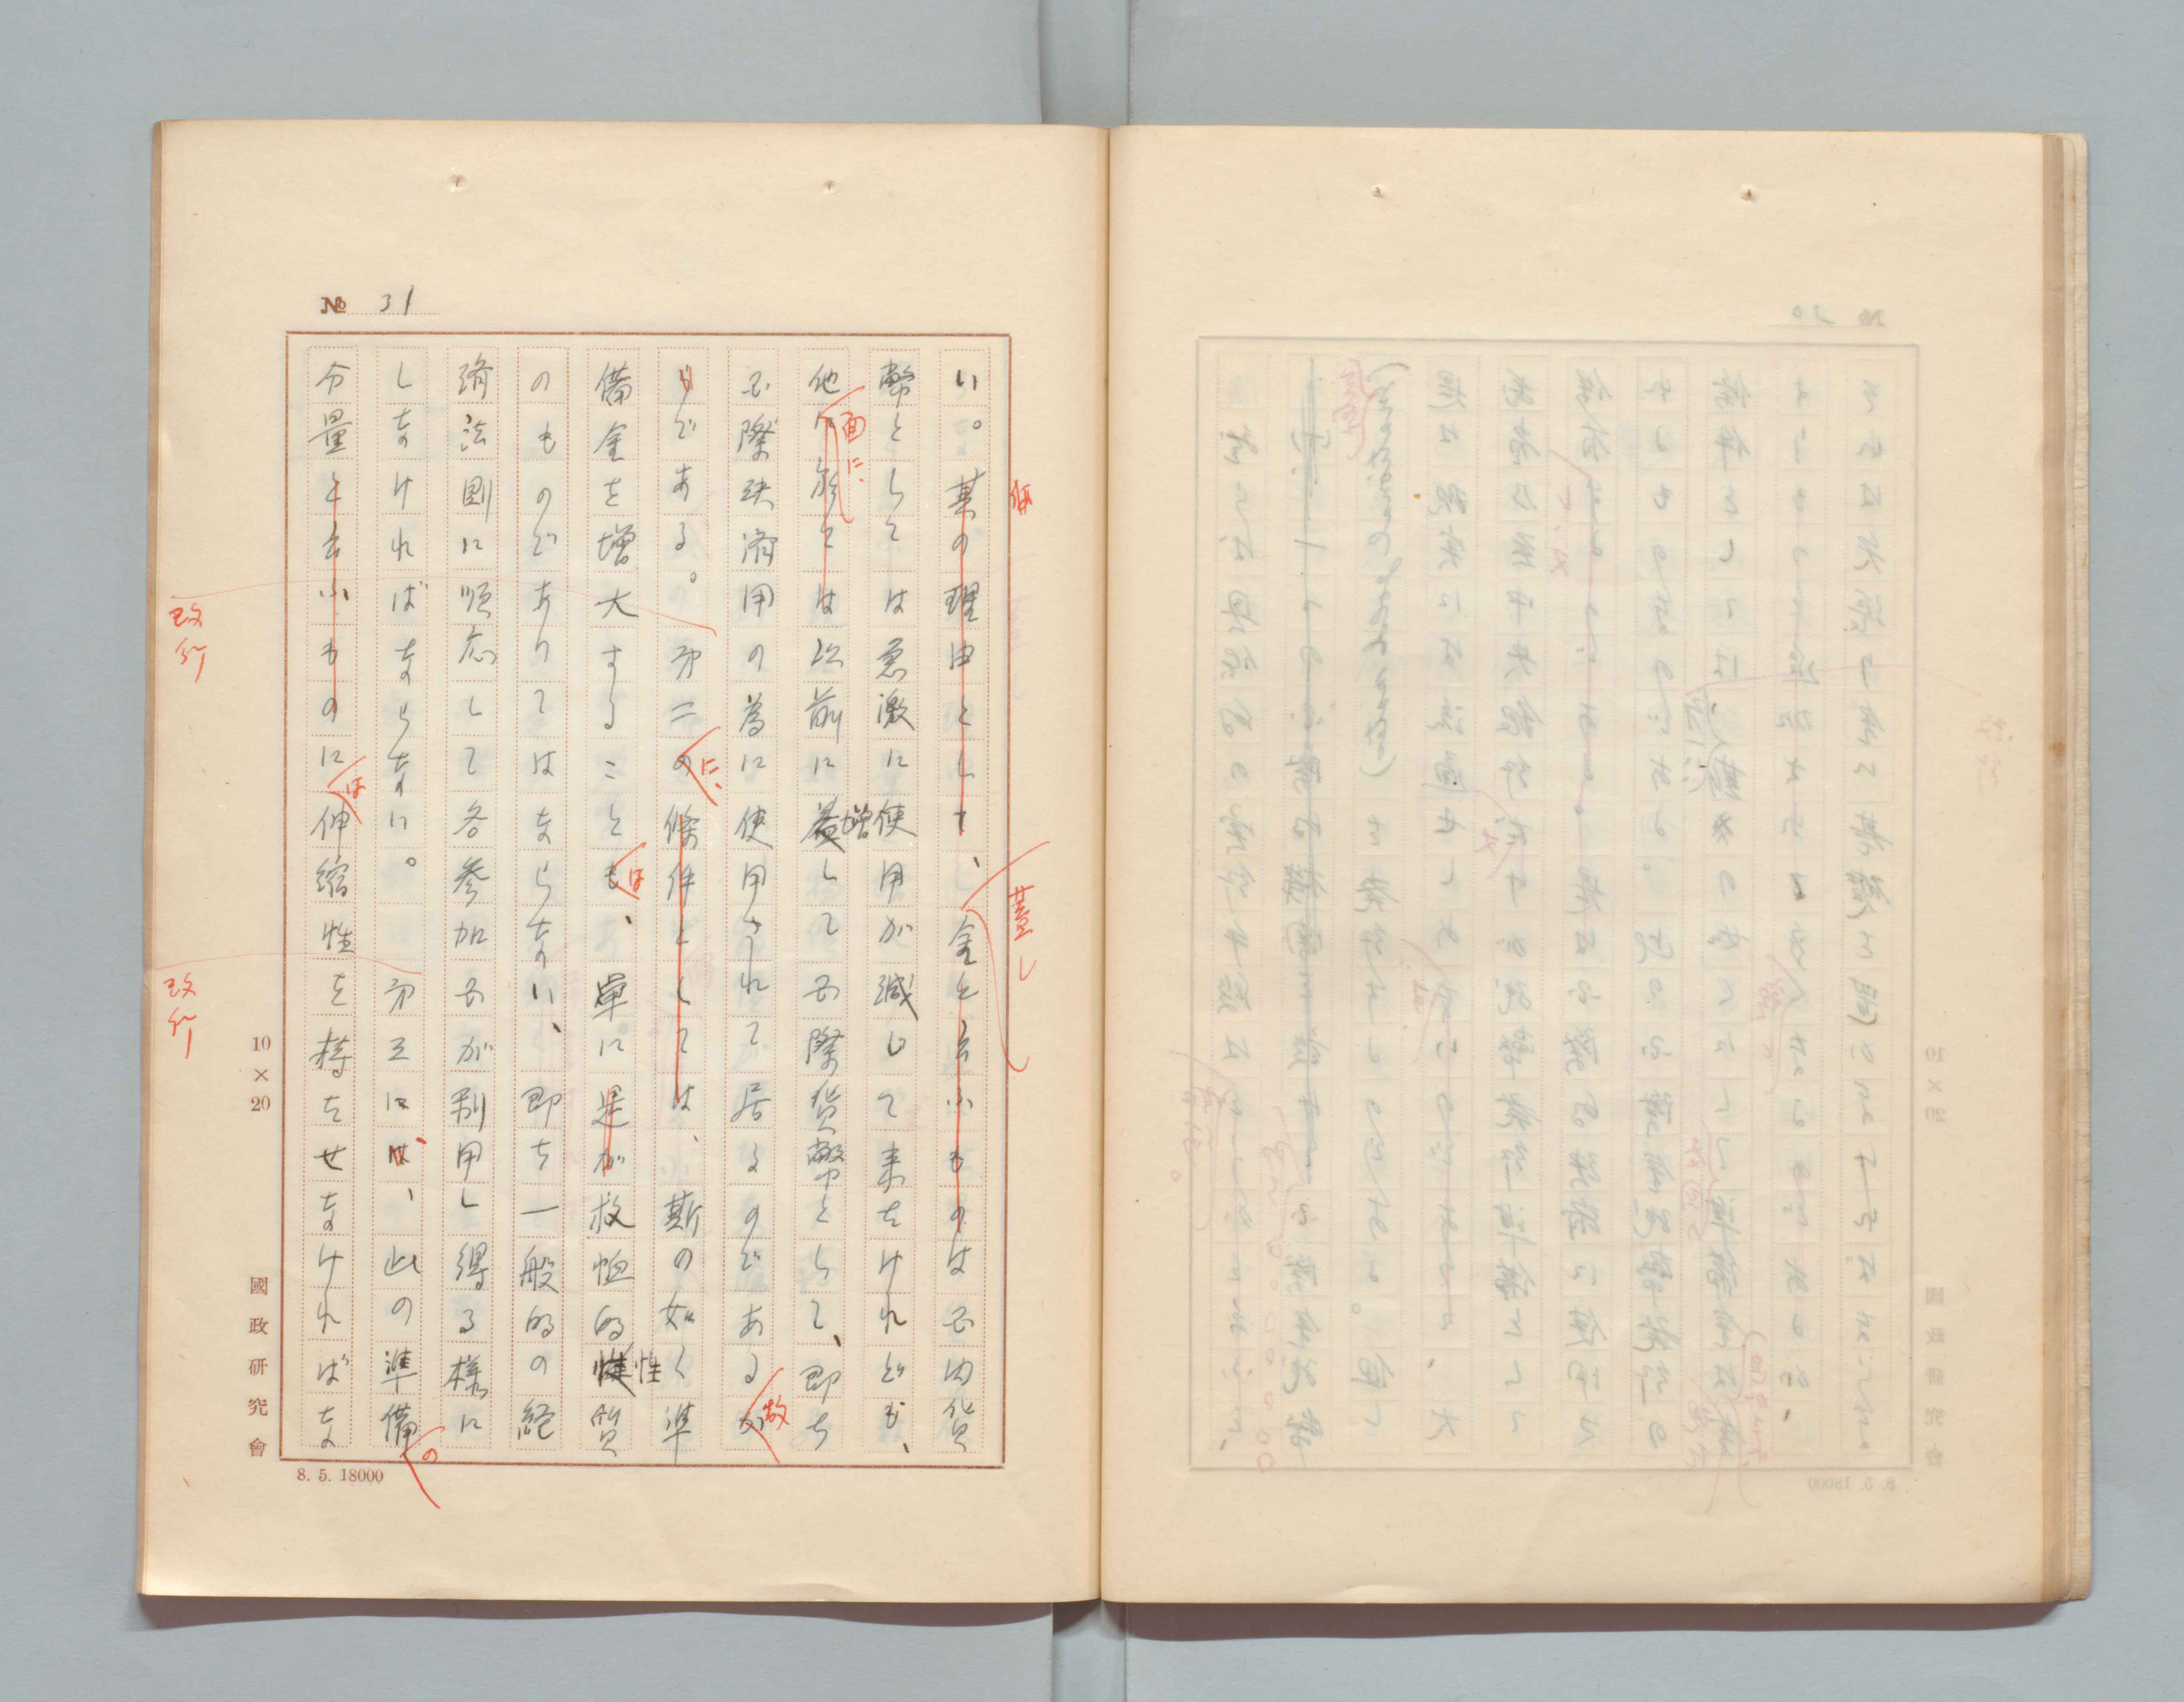 № 31
い。其の理由として、金と云ふものは国内貨
幣としては急激に使用が減じて来たけれども、
他に於ては以前に増して国際貨幣として、即ち
国際決済用の為に使用されて居るのである
からである。第二の條件としては、斯の如く準
備金を増大することも、単に是が救恤的性質
のものでありてはならない、即ち一般的の経
済法則に順応して各参加国が利用し得る様に
しなければならない。第三には、此の準備
分量と云ふものに伸縮性を持たせなければな
蓋し
面に
故
に、
は
性
増
の
は
改行
改行
10×20
國政研究會
8. 5. 18000